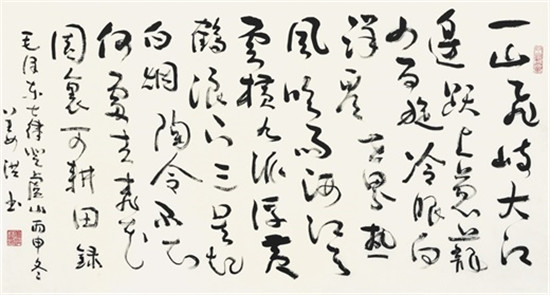 一山飛峙大江
邊躍上葱蘢
四百旋冷眼向
洋看世界熱
風吹雨洒江天
雲横九派浮黄
鶴浪下三吴起
白烟陶令不知
何處去桃花
園裏可耕田録
毛泽东七律登盧山丙申冬
洪书